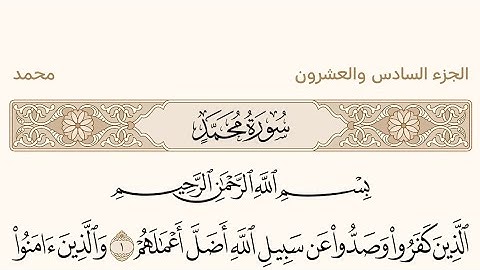 الجزء السادس والعشرون محمد
سُورَةُ مُحَمَّدٍ
بِسْمِ ٱللَّهِ ٱلرَّحْمَٰنِ ٱلرَّحِيمِ
ٱلَّذِينَ كَفَرُوا۟ وَصَدُّوا۟ عَن سَبِيلِ ٱللَّهِ أَضَلَّ أَعْمَٰلَهُمْ ١ وَٱلَّذِينَ ءَامَنُوا۟